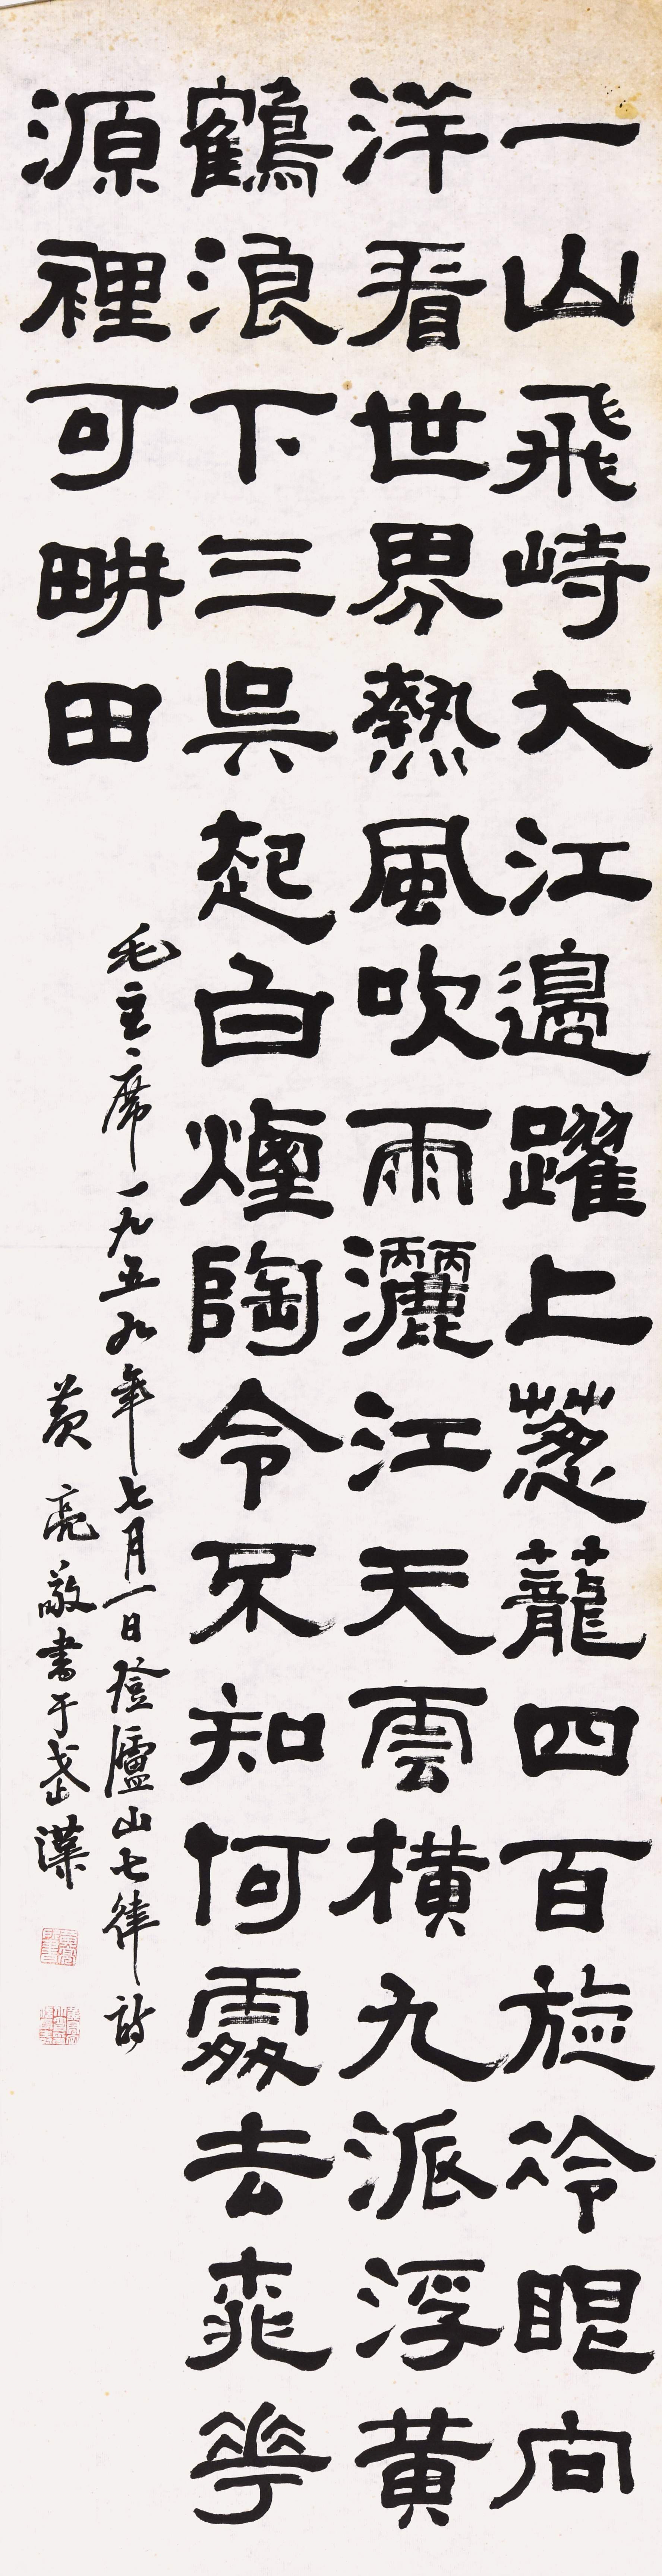 一山飛峙大江邊躍上葱蘢四百旋冷眼向
洋看世界熱風吹雨灑江天雲橫九派浮黄
鶴浪下三吳起白煙陶令不知何處去桃花
源裡可畊田
毛主席一九五九年七月一日登廬山七律詩
黄亮敬書于武漢